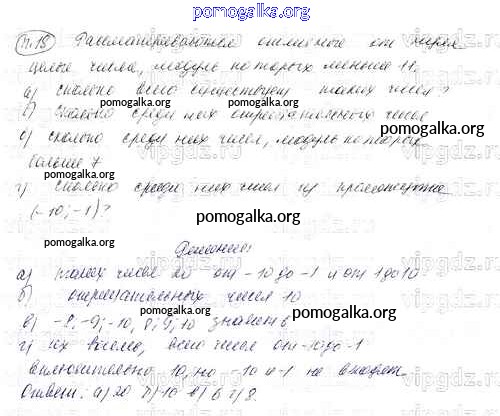 pomogalka.org
п.15 Рассматриваются отличные от нуля
целые числа, модуль которых меньше 11.
а) сколько всего существует таких чисел?
pomogalka.org
б) сколько среди них отрицательных чисел
pomogalka.org
в) сколько среди них чисел, модуль которых
больше 7
pomogalka.org
г) сколько среди них чисел из промежутка
(-10; -1)?
pomogalka.org
pomogalka.org
Решение:
а) таких чисел 20 от -10 до -1 и от 1 до 10
б) отрицательных чисел 10
pomogalka.org
в) -8, -9, -10, 8, 9, 10 значит 6
г) их восемь, всего чисел от -10 до -1
pomogalka.org
включительно 10, но -10 и -1 не входят.
Ответ: а) 20 б) 10 в) 6 г) 8.
pomogalka.org